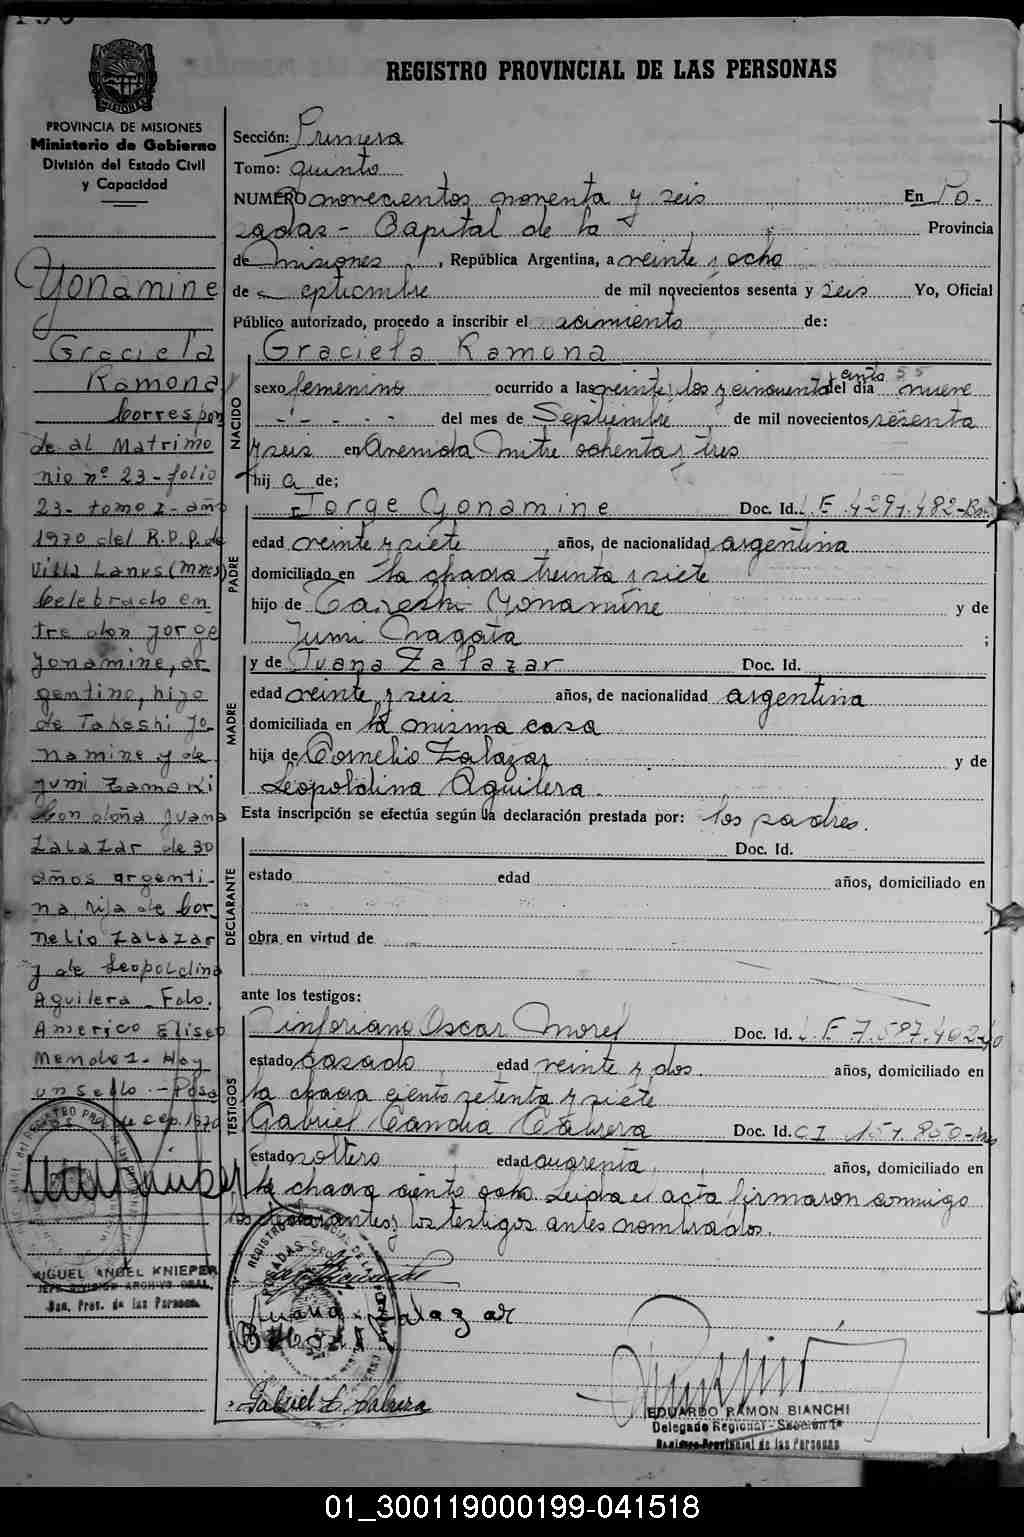 REGISTRO PROVINCIAL DE LAS PERSONAS
PROVINCIA DE MISIONES
Ministerio de Gobierno
División del Estado Civil
y Capacidad
Yonamine
Graciela
Ramona
Correspon
de al Matrimo
nio nº 23 - folio
23 - tomo I - año
1970 del R.P.P. de
Villa Lanus (Mnes)
Celebrado en
tre don Jorge
Yonamine, ar
gentino, hijo
de Takeshi Yo
namine y de
Yumi Zamaki
Con doña Juana
Zalazar de 30
años argenti-
na, hija de Cor
nelio Zalazar
y de Leopoldina
Aguilera - Fdo.
Americo Eliseo
Mendoz - Hay
un sello. - Posa
das de Sep. 1970
MIGUEL ANGEL KNIEPER
JEFE DIVISION ARCHIVO GRAL.
Reg. Prov. de las Personas
Sección: Primera
Tomo: quinto
NUMERO novecientos noventa y seis En Po-
sadas - Capital de la Provincia
de Misiones, República Argentina, a veinte y ocho
de Septiembre de mil novecientos sesenta y seis Yo, Oficial
Público autorizado, procedo a inscribir el nacimiento de:
NACIDO
Graciela Ramona
sexo femenino ocurrido a las veinte y los y cincuenta del día nueve
- - - - del mes de Septiembre de mil novecientos sesenta
y seis en Avenida Mitre ochenta y tres
hija de;
PADRE
Jorge Yonamine Doc. Id. L.E. 429
edad veinte y siete años, de nacionalidad argentina
domiciliado en la chacra treinta y siete
hijo de Yonamine y de
Yumi Nagata ;
MADRE
y de Juana Zalazar Doc. Id.
edad veinte y seis años, de nacionalidad argentina
domiciliada en la misma casa
hija de Cornelio Zalazar y de
Leopoldina Aguilera.
Esta inscripción se efectúa según la declaración prestada por: los padres.
DECLARANTE
Doc. Id.
estado edad años, domiciliado en
obra en virtud de
ante los testigos:
TESTIGOS
Sinforiano Oscar Morel Doc. Id. L.E. 7.587.402
estado casado edad veinte y dos. años, domiciliado en
la chacra ciento setenta y siete
Gabriel Candia Cabrera Doc. Id. CI 157.850
estado soltero edad cuarenta años, domiciliado en
la chacra ciento ocho. Leida el acta firmaron conmigo
los declarantes y los testigos antes nombrados.
Juana Zalazar
Gabriel C. Cabrera
EDUARDO RAMON BIANCHI
Delegado Regional - Sección 1ª
Registro Provincial de las Personas
01_300119000199-041518